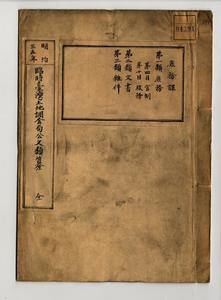 庶務課
第一類庶務
第四目官制
第十目規條
第二類文書
第三類雜件
明治
三五年
臨時臺灣土地調查局公文類纂
全